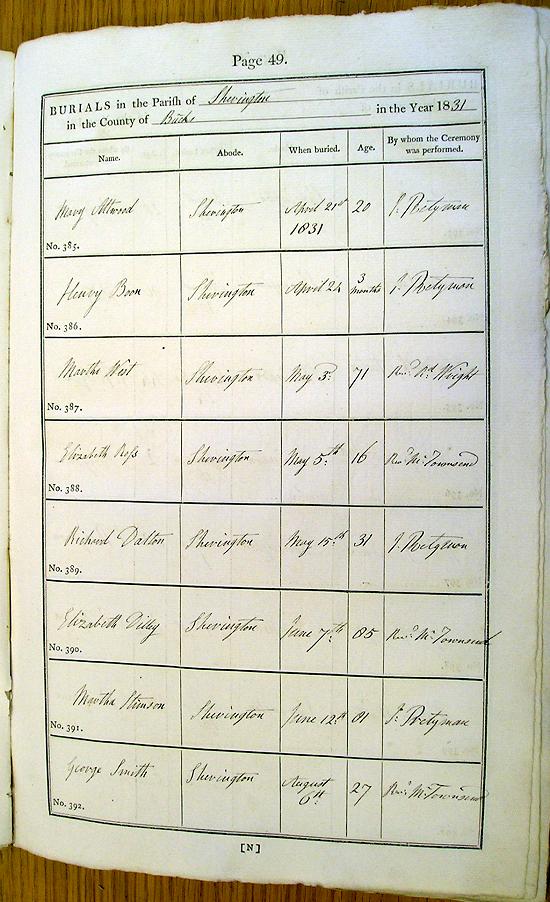 Page 49.
BURIALS in the Parish of Shevington
in the County of Bucks in the Year 1831
Name. Abode. When buried. Age. By whom the Ceremony was performed.
Mary Attwood Shevington April 21st 1831 20 J. Pretyman
No. 385.
Henry Boon Shevington April 24 3 months J. Pretyman
No. 386.
Martha West Shevington May 3d. 71 Revd. Rd. Wright
No. 387.
Elizabeth Ross Shevington May 5th. 16 Revd. Mr. Townsend
No. 388.
Richard Dalton Shevington May 15th 31 J. Pretyman
No. 389.
Elizabeth Dilly Shevington June 7th. 85 Revd. Mr. Townsend
No. 390.
Martha Stimson Shevington June 12th 81 J. Pretyman
No. 391.
George Smith Shevington August 6th. 27 Revd. Mr. Townsend
No. 392.
[N]